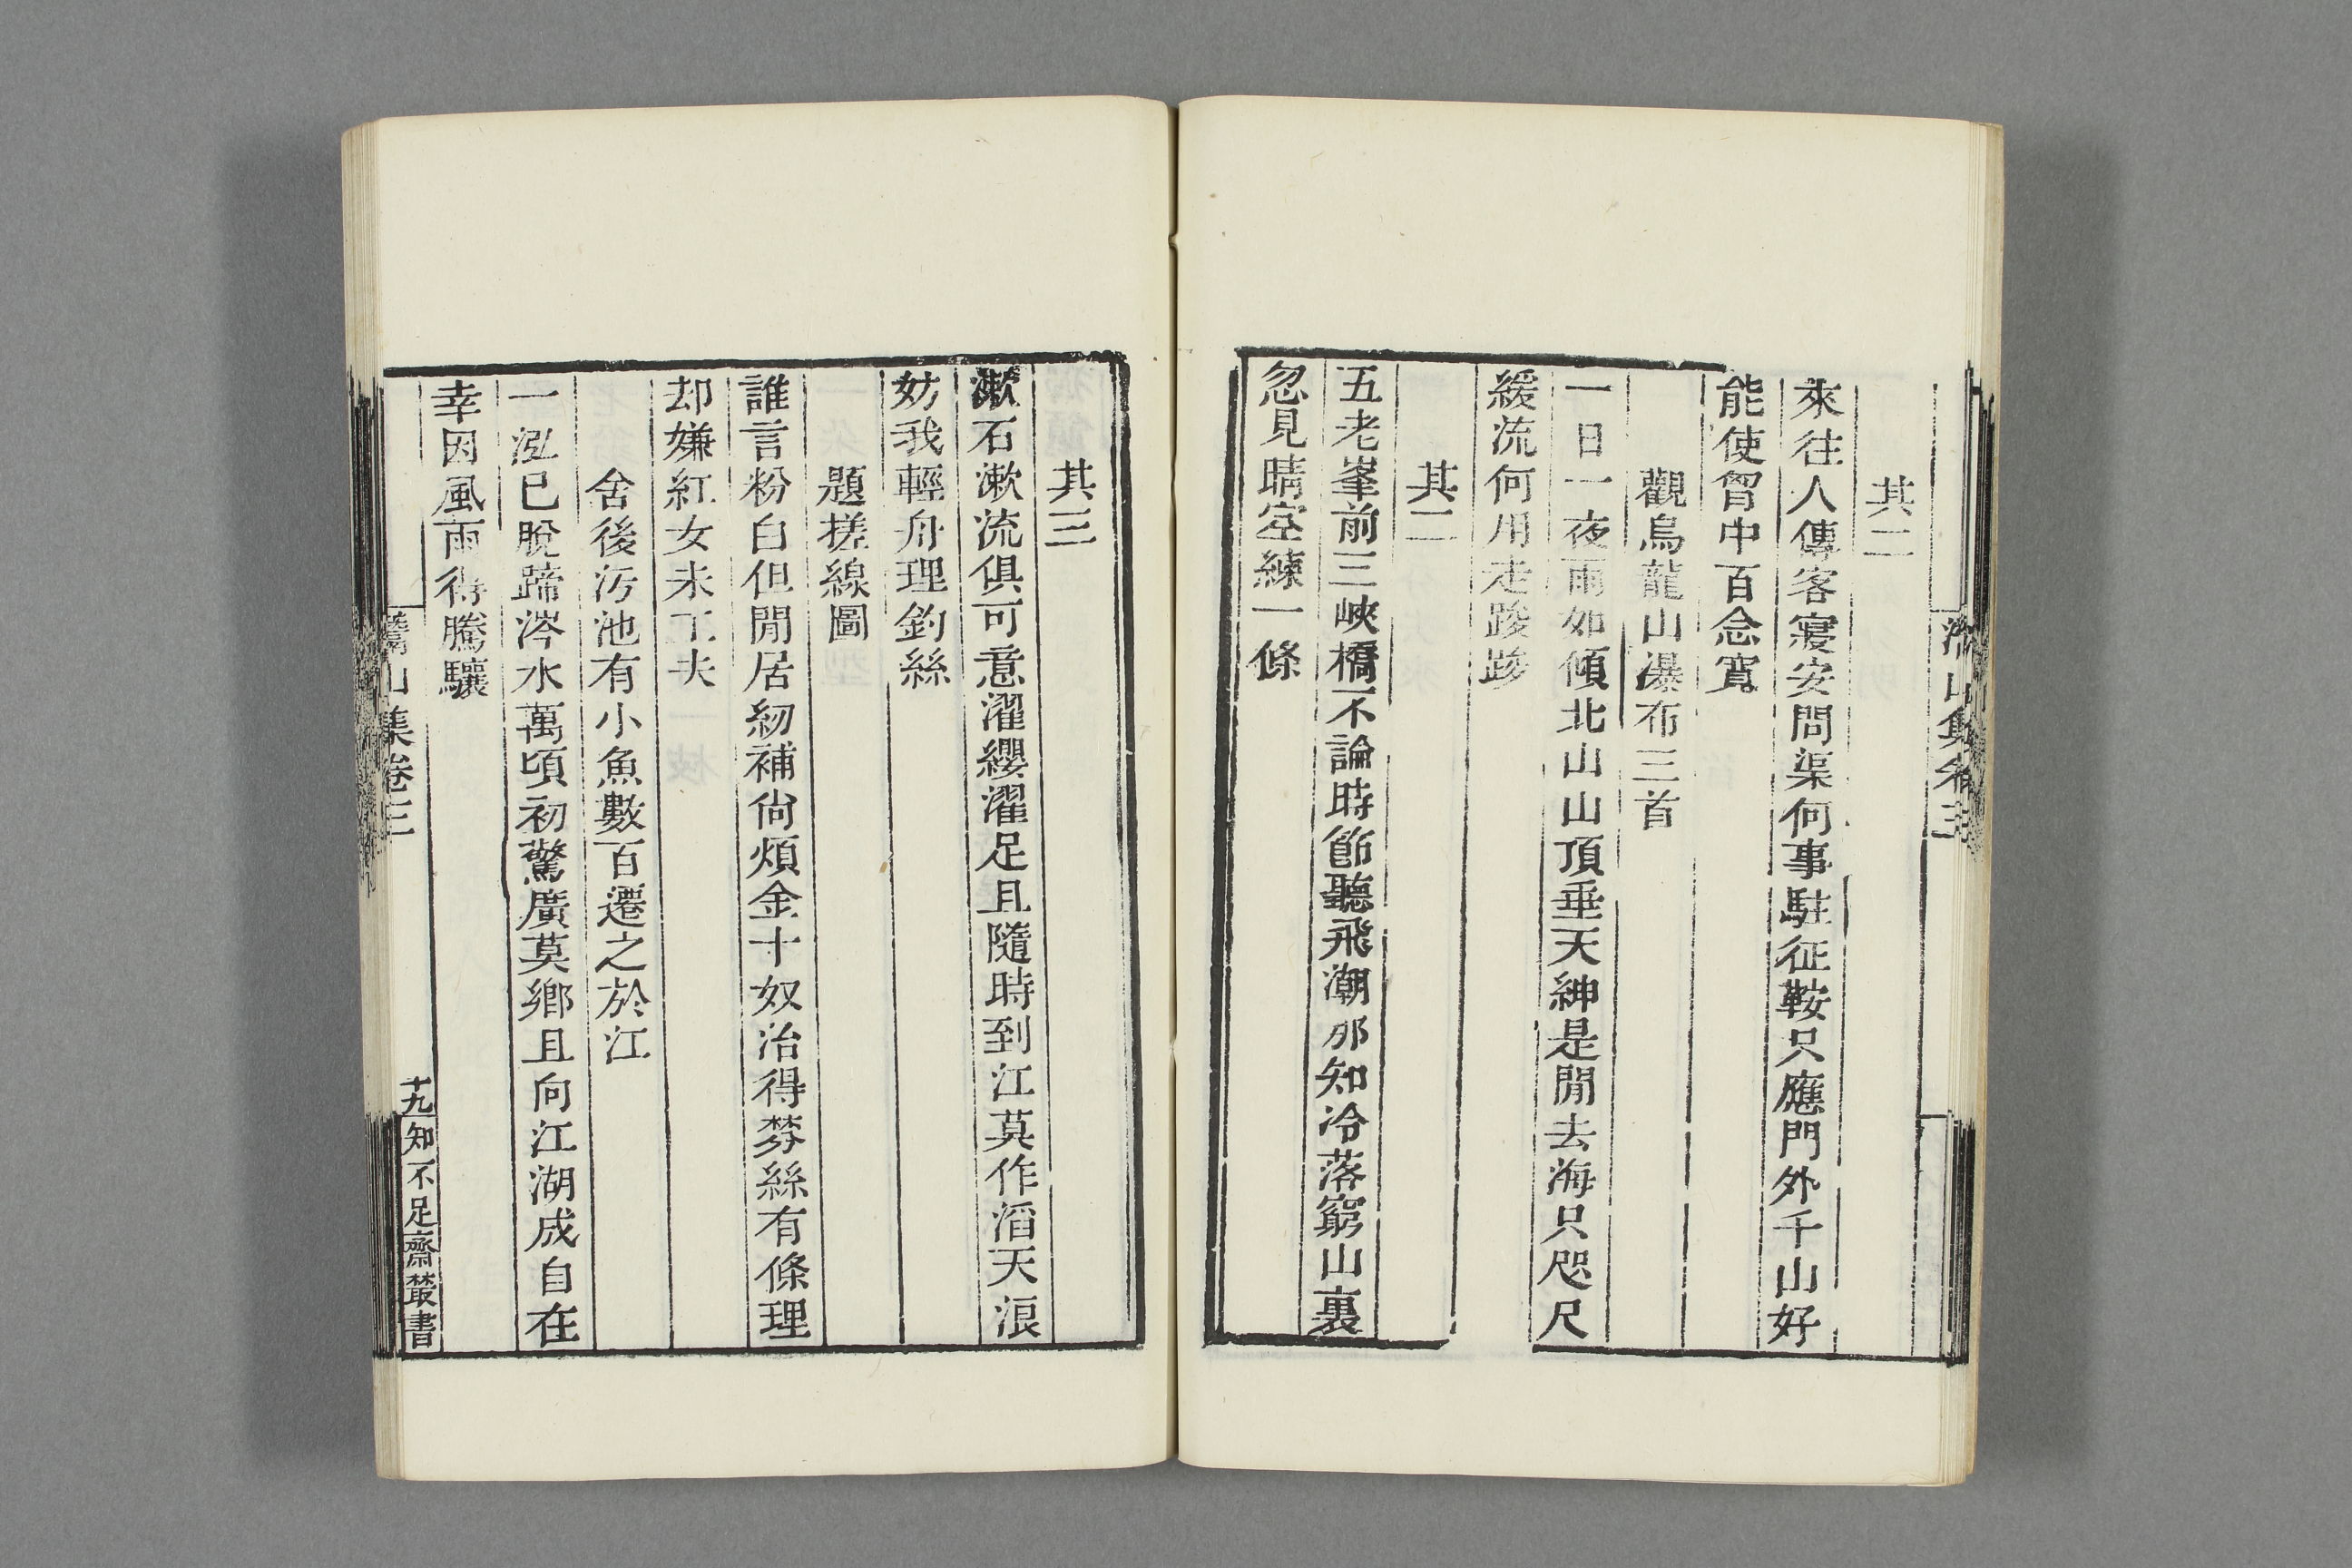 其二
來往人傳客寢安問渠何事駐征鞍只應門外千山好
能使胷中百念寬
觀烏龍山瀑布三首
一日一夜雨如傾北山山頂垂天紳是閒去海只咫尺
緩流何用走踆踆
其二
五老峯前三峽橋不論時節聽飛潮那知冷落窮山裏
忽見晴空練一條
其三
漱石漱流俱可意濯纓濯足且隨時到江莫作滔天浪
妨我輕舟理釣絲
題搓線圖
誰言粉白但閒居紉補尙煩金十奴治得棼絲有條理
却嫌紅女未工夫
舍後汚池有小魚數百遷之於江
一泓已脫蹄涔水萬頃初驚廣莫鄉且向江湖成自在
幸因風雨得騰驤
山集卷三
十九
知不足齋叢書